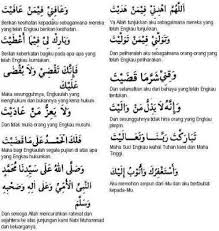 اَللّٰهُمَّ اهْدِنِيْ فِيْمَنْ هَدَيْتَ
Ya Allah tunjukkan aku sebagaimana mereka yang telah Engkau tunjukkan.
وَعَافِنِيْ فِيْمَنْ عَافَيْتَ
Berilah kesihatan kepadaku sebagaimana mereka yang telah Engkau berikan kesihatan.
وَتَوَلَّنِيْ فِيْمَنْ تَوَلَّيْتَ
Dan peliharalah aku sebagaimana orang-orang yang telah Engkau peliharakan.
وَبَارِكْ لِيْ فِيْمَا أَعْطَيْتَ
Berilah keberkatan bagiku pada apa-apa yang telah Engkau kurniakan.
وَقِنِيْ شَرَّمَا قَضَيْتَ
Dan selamatkan aku dari bahaya yang telah Engkau tentukan.
فَإِنَّكَ تَقْضِيْ وَلَا يُقْضَى عَلَيْكَ
Maka sesungguhnya, Engkaulah yang menghukum dan bukannya yang kena hukum.
وَإِنَّهُ لَا يَذِلُّ مَنْ وَالَيْتَ
Dan sesungguhnya tidak hina orang yang Engkau pimpin.
وَلَا يَعِزُّ مَنْ عَادَيْتَ
Dan tidak mulia orang yang Engkau musuhi.
تَبَارَكْتَ رَبَّنَا وَتَعَالَيْتَ
Maha Suci Engkau wahai Tuhan kami dan Maha Tinggi.
فَلَكَ الْحَمْدُ عَلَى مَا قَضَيْتَ
Maha bagi Engkaulah segala pujian di atas apa yang Engkau hukumkan.
وَأَسْتَغْفِرُكَ وَأَتُوْبُ إِلَيْكَ
Aku memohon ampun dari-Mu dan aku bertaubat kepada-Mu.
وَصَلَّى اللهُ عَلَى سَيِّدِنَا مُحَمَّدٍ
النَّبِيِّ الْأُمِّيِّ وَعَلَى آلِهِ وَصَحْبِهِ
وَسَلَّمَ
Dan semoga Allah mencurahkan rahmat dan sejahtera ke atas junjungan kami Nabi Muhammad dan keluarganya.